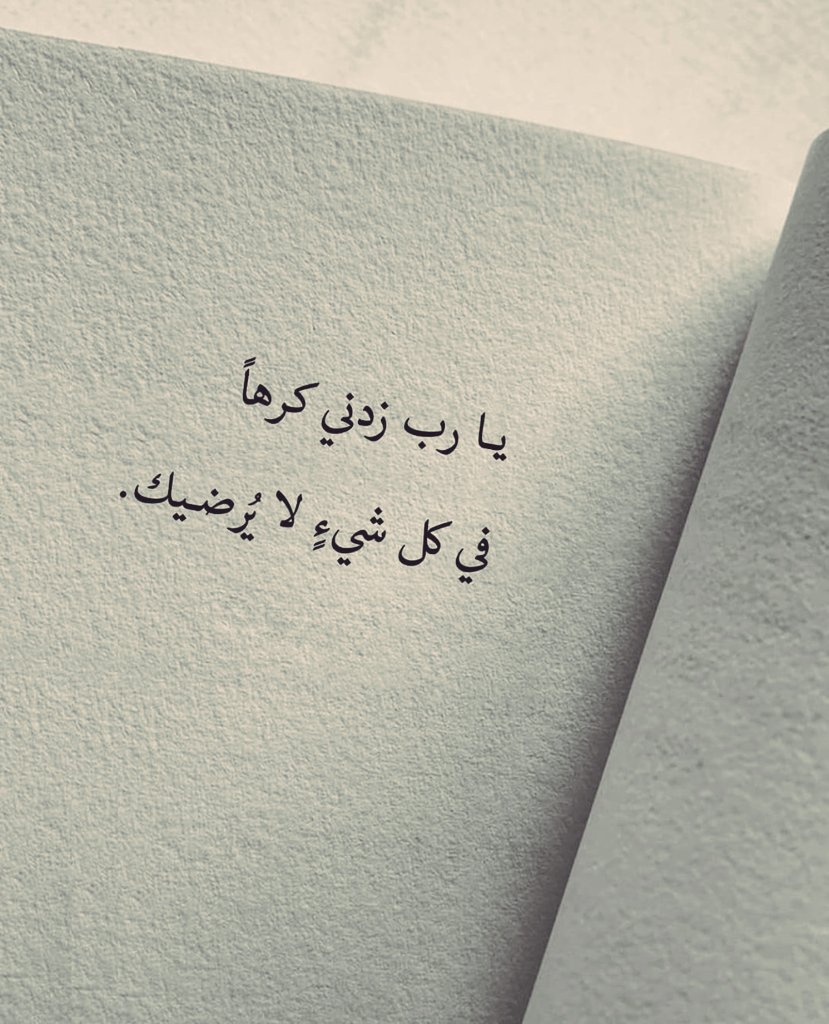 يا رب زدني كرهاً
في كل شيءٍ لا يُرضيك.